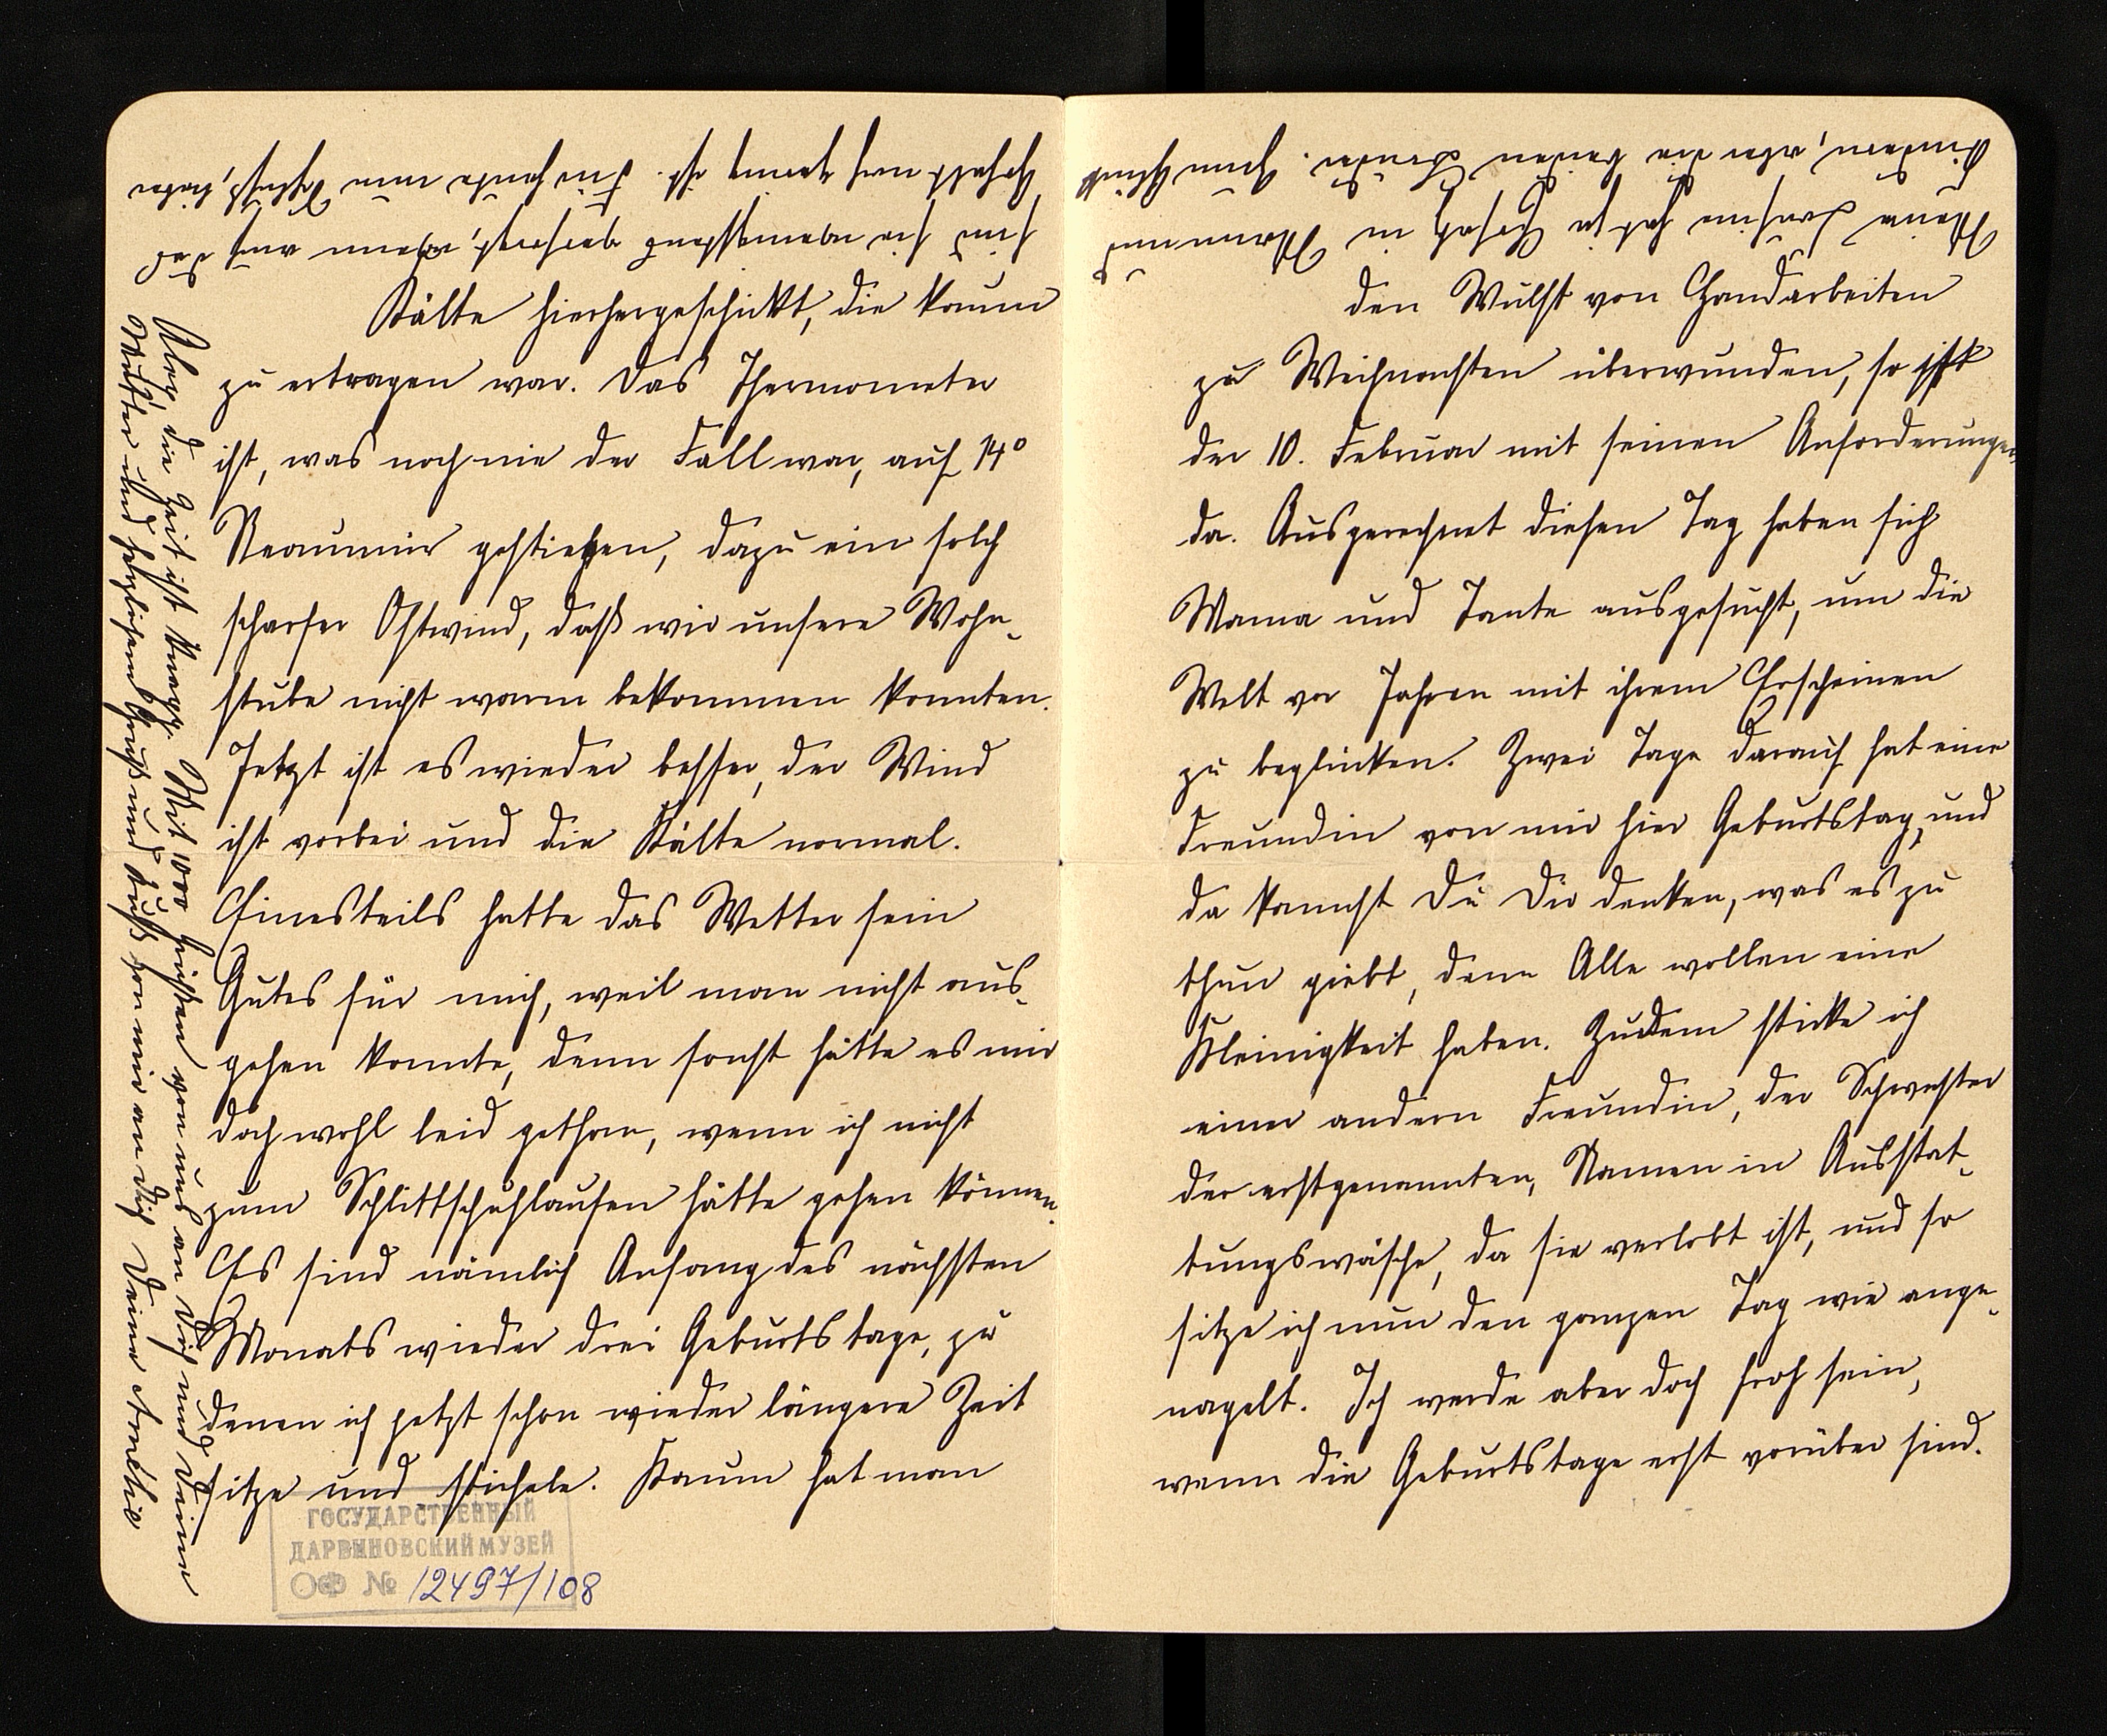 Kälte hierhergeschickt, die kaum
zu ertragen war. Das Thermometer
ist, was noch nie der Fall war, auf 14°
Reaumür gestiegen, dazu ein solch
scharfer Ostwind, daß wir unsere Wohn-
stube nicht warm bekommen konnten.
Jetzt ist es wieder besser, der Wind
ist vorbei und die Kälte normal.
Einesteils hatte das Wetter sein
Gutes für mich, weil man nicht aus-
gehen konnte, denn sonst hätte es mir
doch wohl leid gethan, wenn ich nicht
zum Schlittschuhlaufen hätte gehen können.
Es sind nämlich Anfang des nächsten
Monats wieder drei Geburtstage, zu
denen ich jetzt schon wieder längere Zeit
sitze und stichele. Kaum hat man
den Wulst von Handarbeiten
zu Weihnachten überwunden, so ist
der 10. Februar mit seinen Anforderungen
da. Ausgerechnet diesen Tag haben sich
Mama und Tante ausgesucht, um die
Welt vor Jahren mit ihrem Erscheinen
zu beglücken. Zwei Tage darauf hat eine
Freundin von mir hier Geburtstag, und
da kannst Du Dir denken, was es zu
thun giebt, denn Alle wollen eine
Kleinigkeit haben. Zudem sticke ich
einer andern Freundin, der Schwester
der erstgenannten, Namen in Ausstat-
tungswäsche, da sie verlobt ist, und so
sitze ich nun den ganzen Tag wie ange-
nagelt. Ich werde aber doch froh sein,
wenn die Geburtstage erst vorüber sind.
Meine Cousine hat ja Besuch in Mama und
Kindern, oder die beiden Brüder. Zum Glück
sind sie wenigstens geimpft, wenn auch das
noch genug ist. Für heute nun Schluß, liebe
Aber, die Zeit ist knapp. Mit 1000 Grüßen von uns an Dich und Deine
Mutter und herzlichem Gruß und Kuß von mir an Dich Deine Amélie
ГОСУДАРСТВЕННЫЙ
ДАРВИНОВСКИЙ МУЗЕЙ
ОФ № 12497/108